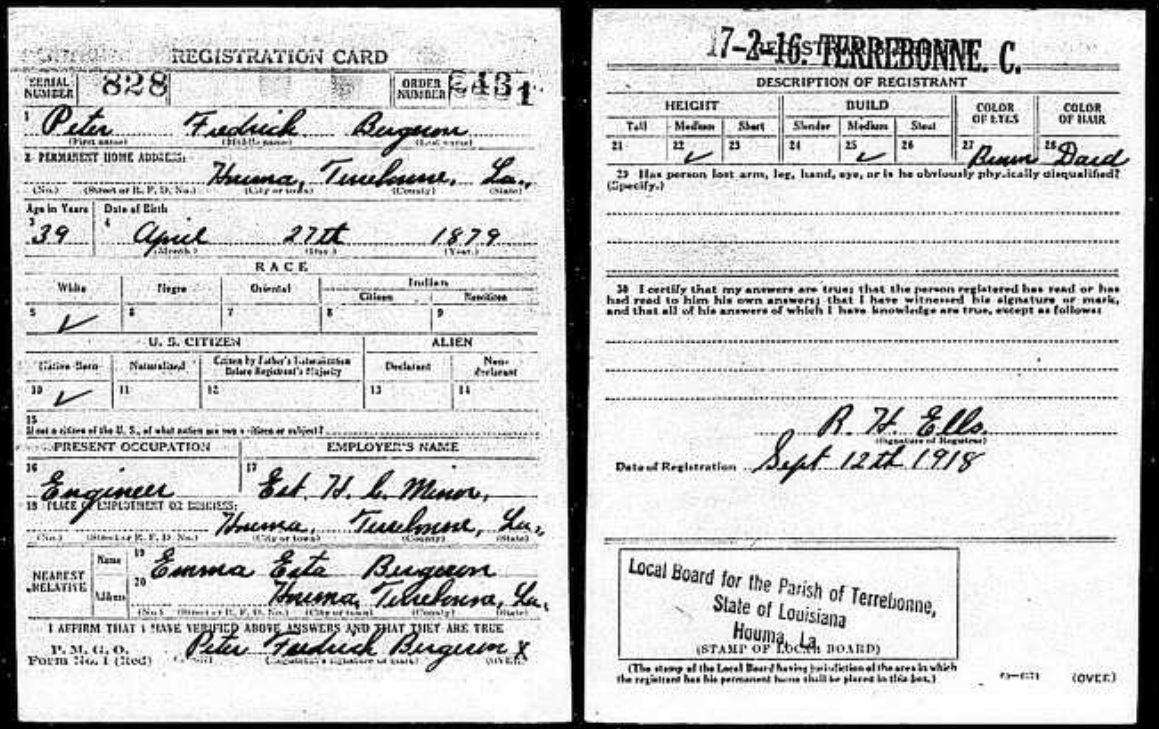 REGISTRATION CARD
SERIAL NUMBER 828 ORDER NUMBER 2431
1 Peter Fredrick Bergeron
(First name) (Middle name) (Last name)
2 PERMANENT HOME ADDRESS:
Houma, Terrebonne, La.,
(No.) (Street or R. F. D. No.) (City or town) (County) (State)
Age in Years Date of Birth
3 39 4 April 27th 1879
(Month.) (Day.) (Year.)
RACE
White Negro Oriental Indian
Citizen Noncitizen
5 ✓ 6 7 8 9
U. S. CITIZEN ALIEN
Native Born Naturalized Citizen by Father's Naturalization Before Registrant's Majority Declarant Non-declarant
10 ✓ 11 12 13 14
15
If not a citizen of the U. S., of what nation are you a citizen or subject?
PRESENT OCCUPATION EMPLOYER'S NAME
16 Engineer 17 Est. H. C. Minor,
18 PLACE OF EMPLOYMENT OR BUSINESS:
Houma, Terrebonne, La.,
(No.) (Street or R. F. D. No.) (City or town) (County) (State)
NEAREST RELATIVE
Name 19 Emma Esta Bergeron
Address 20 Houma, Terrebonne, La.,
(No.) (Street or R. F. D. No.) (City or town) (County) (State)
I AFFIRM THAT I HAVE VERIFIED ABOVE ANSWERS AND THAT THEY ARE TRUE
P. M. G. O.
Form No. 1 (Red) Peter Fredrick Bergeron X
(Registrant's signature or mark) (OVER)
17-2-16. TERREBONNE. C.
DESCRIPTION OF REGISTRANT
HEIGHT BUILD COLOR OF EYES COLOR OF HAIR
Tall Medium Short Slender Medium Stout
21 22 ✓ 23 24 25 ✓ 26 27 Brown 28 Dard
29 Has person lost arm, leg, hand, eye, or is he obviously physically disqualified?
(Specify.)
30 I certify that my answers are true; that the person registered has read or has
had read to him his own answers; that I have witnessed his signature or mark,
and that all of his answers of which I have knowledge are true, except as follows:
R. H. Ells.
(Signature of Registrar)
Date of Registration Sept 12th 1918
Local Board for the Parish of Terrebonne,
State of Louisiana
Houma, La.
(STAMP OF LOCAL BOARD)
(The stamp of the Local Board having jurisdiction of the area in which
the registrant has his permanent home shall be placed in this box.)
(OVER)